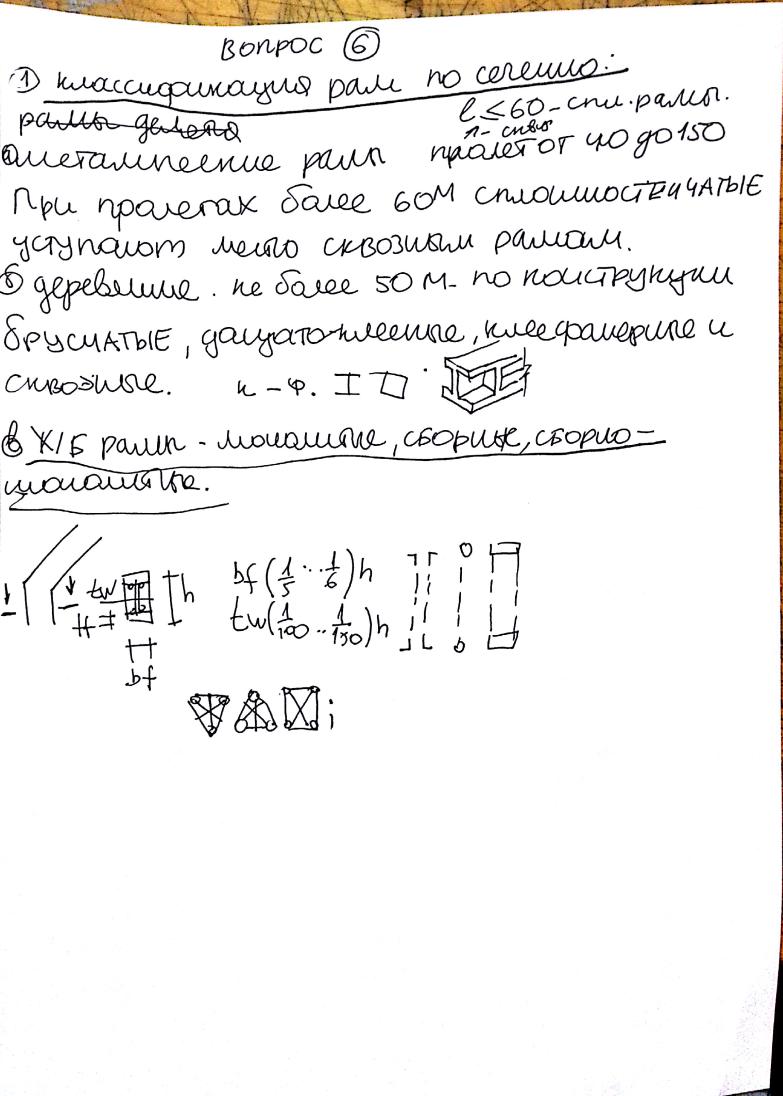 ВОПРОС ⑥
① классификация рам по сечению:
рамы делена
l ≤ 60 - спл. рамы.
а) металлические рамы пролет от 40 до 150
При пролетах более 60м СПЛОШНОСТЕНЧАТЫЕ
уступают место сквозным рамам.
б) деревянные. не более 50м - по конструкции
БРУСЧАТЫЕ, дощато-клееные, клеефанерные и
сквозные. к - ф.
в) Ж/Б рамы - монолитные, СБОРНЫЕ, СБОРНО-
монолитные.
tw h
bf
bf (1/5 ... 1/6) h
tw (1/100 ... 1/150) h